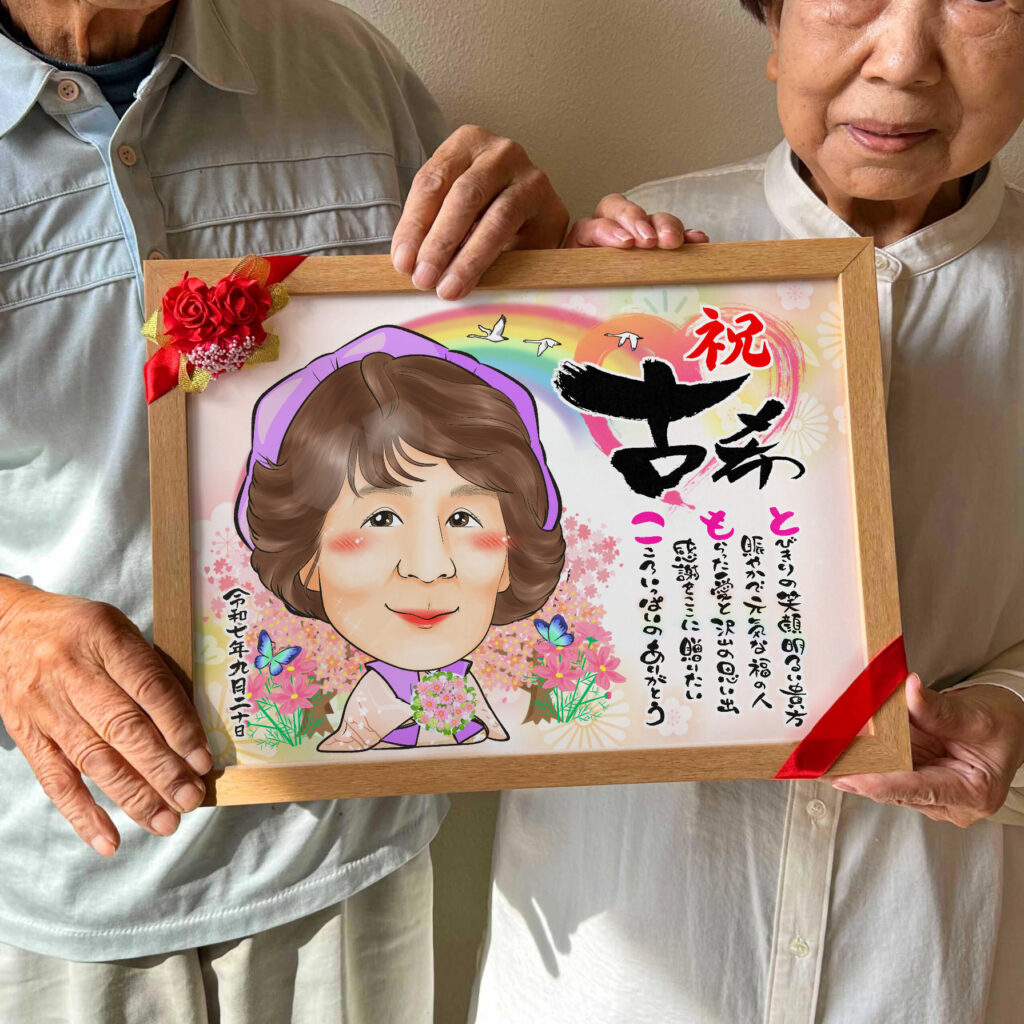 祝
古希
とびきりの笑顔明るい貴方
賑やかで元気な福の人
もらった愛と沢山の思い出
感謝をここに贈りたい
こころいっぱいのありがとう
令和七年九月二十日